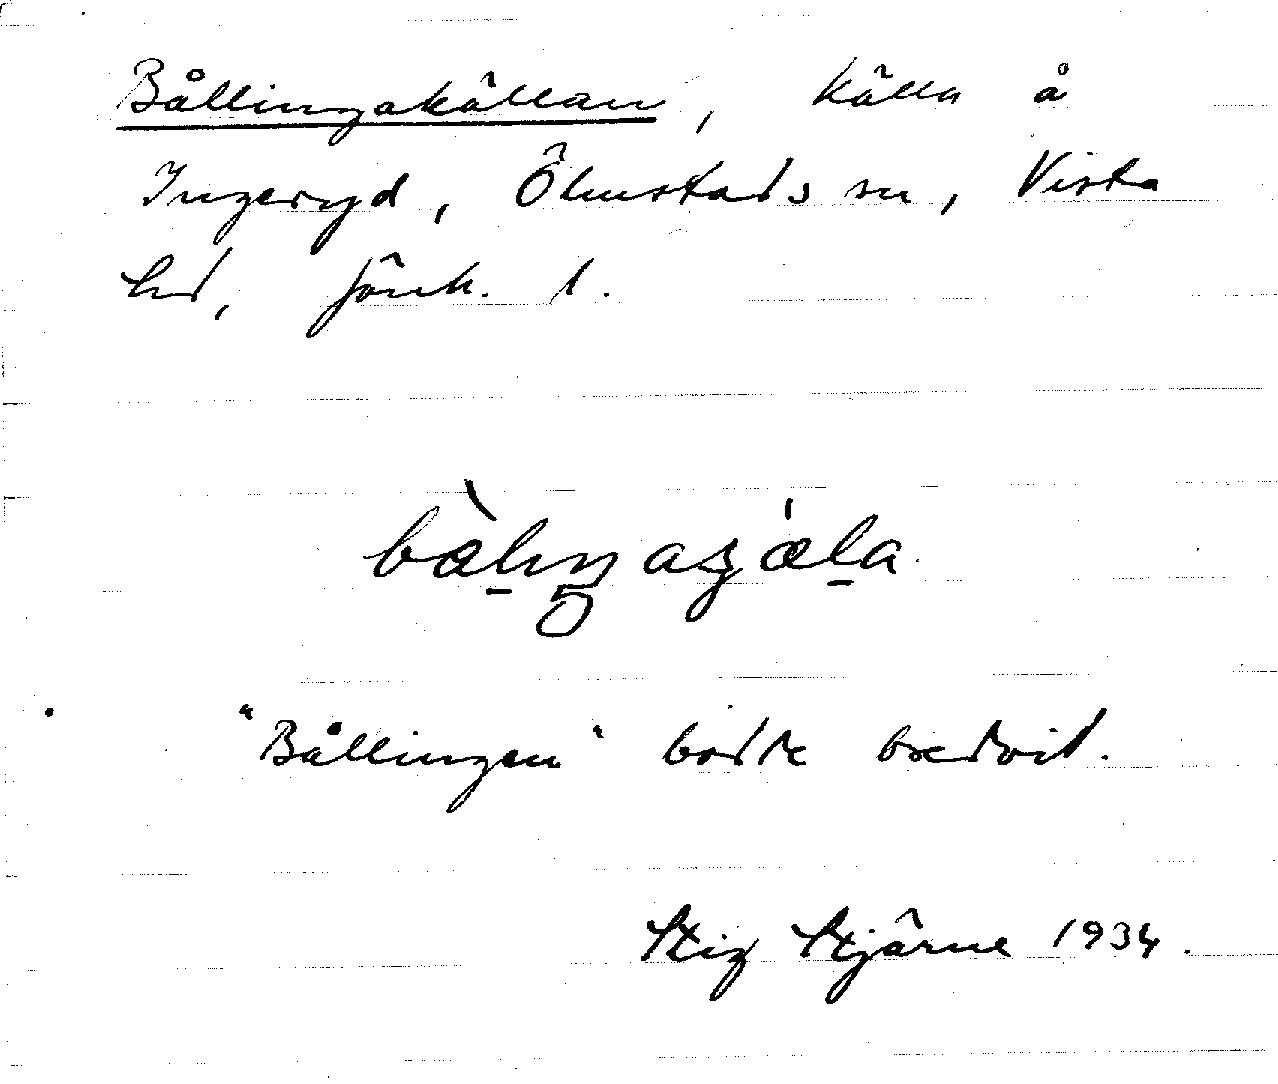 Bållingakällan, källa å
Ingeryd, Ölmstads sn, Vista
hd, Jönk. l.
"Bållingen" bodde bredvid.
Stig Stjärne 1934.